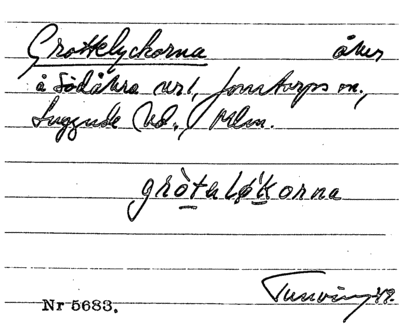 Grottelyckorna åker
å Södåkra nr 1, Jonstorps sn.,
Luggude hd., Mlm.
gròtəlỳkorna
Tunving 49.
Nr 5683.